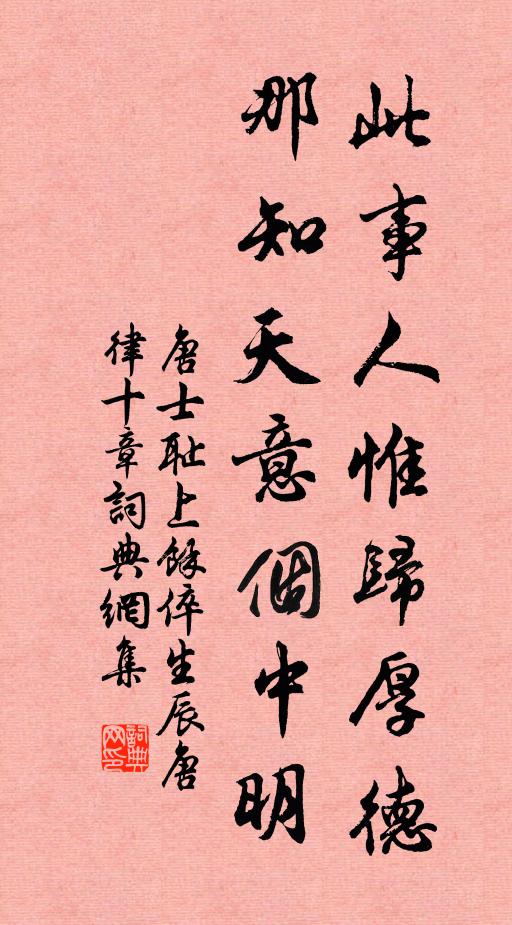 此事人惟歸厚德
那知天意個中明
唐士耻上餘倅生辰唐
律十章詞典網集
詞典
网印